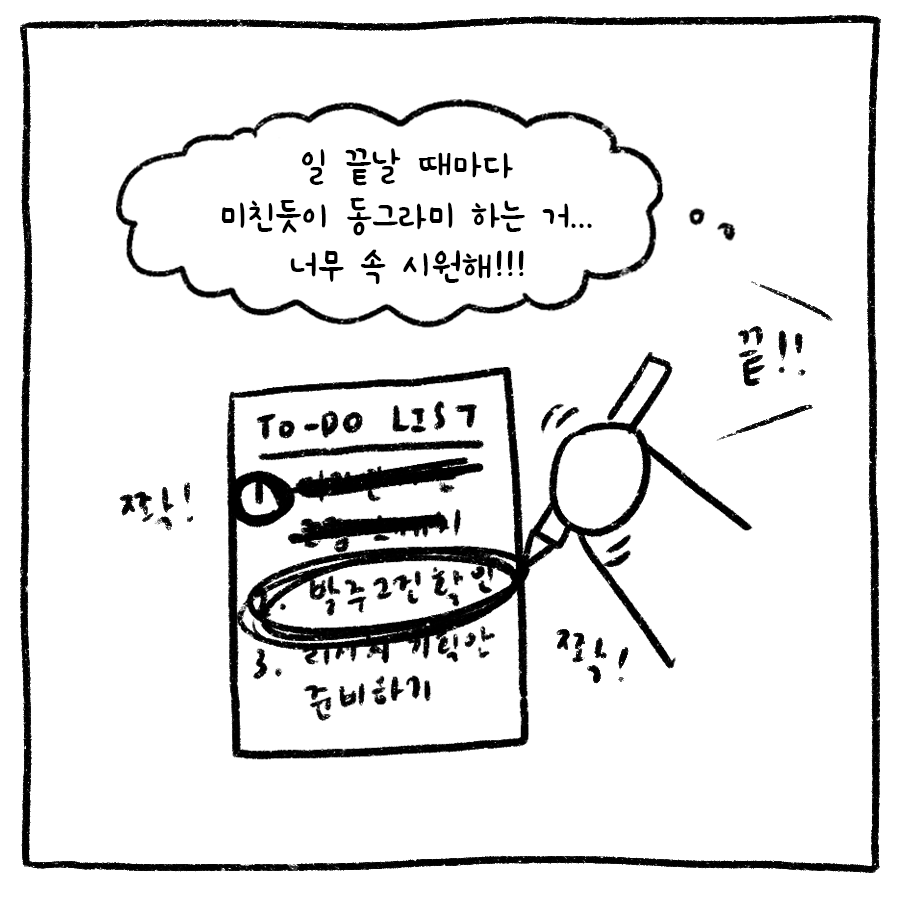 일 끝날 때마다
미친듯이 동그라미 하는 거...
너무 속 시원해!!!
끝!!
TO-DO LIST
짝!
1
2. 발주 2건 확인
3. 기획안
준비하기
짝!